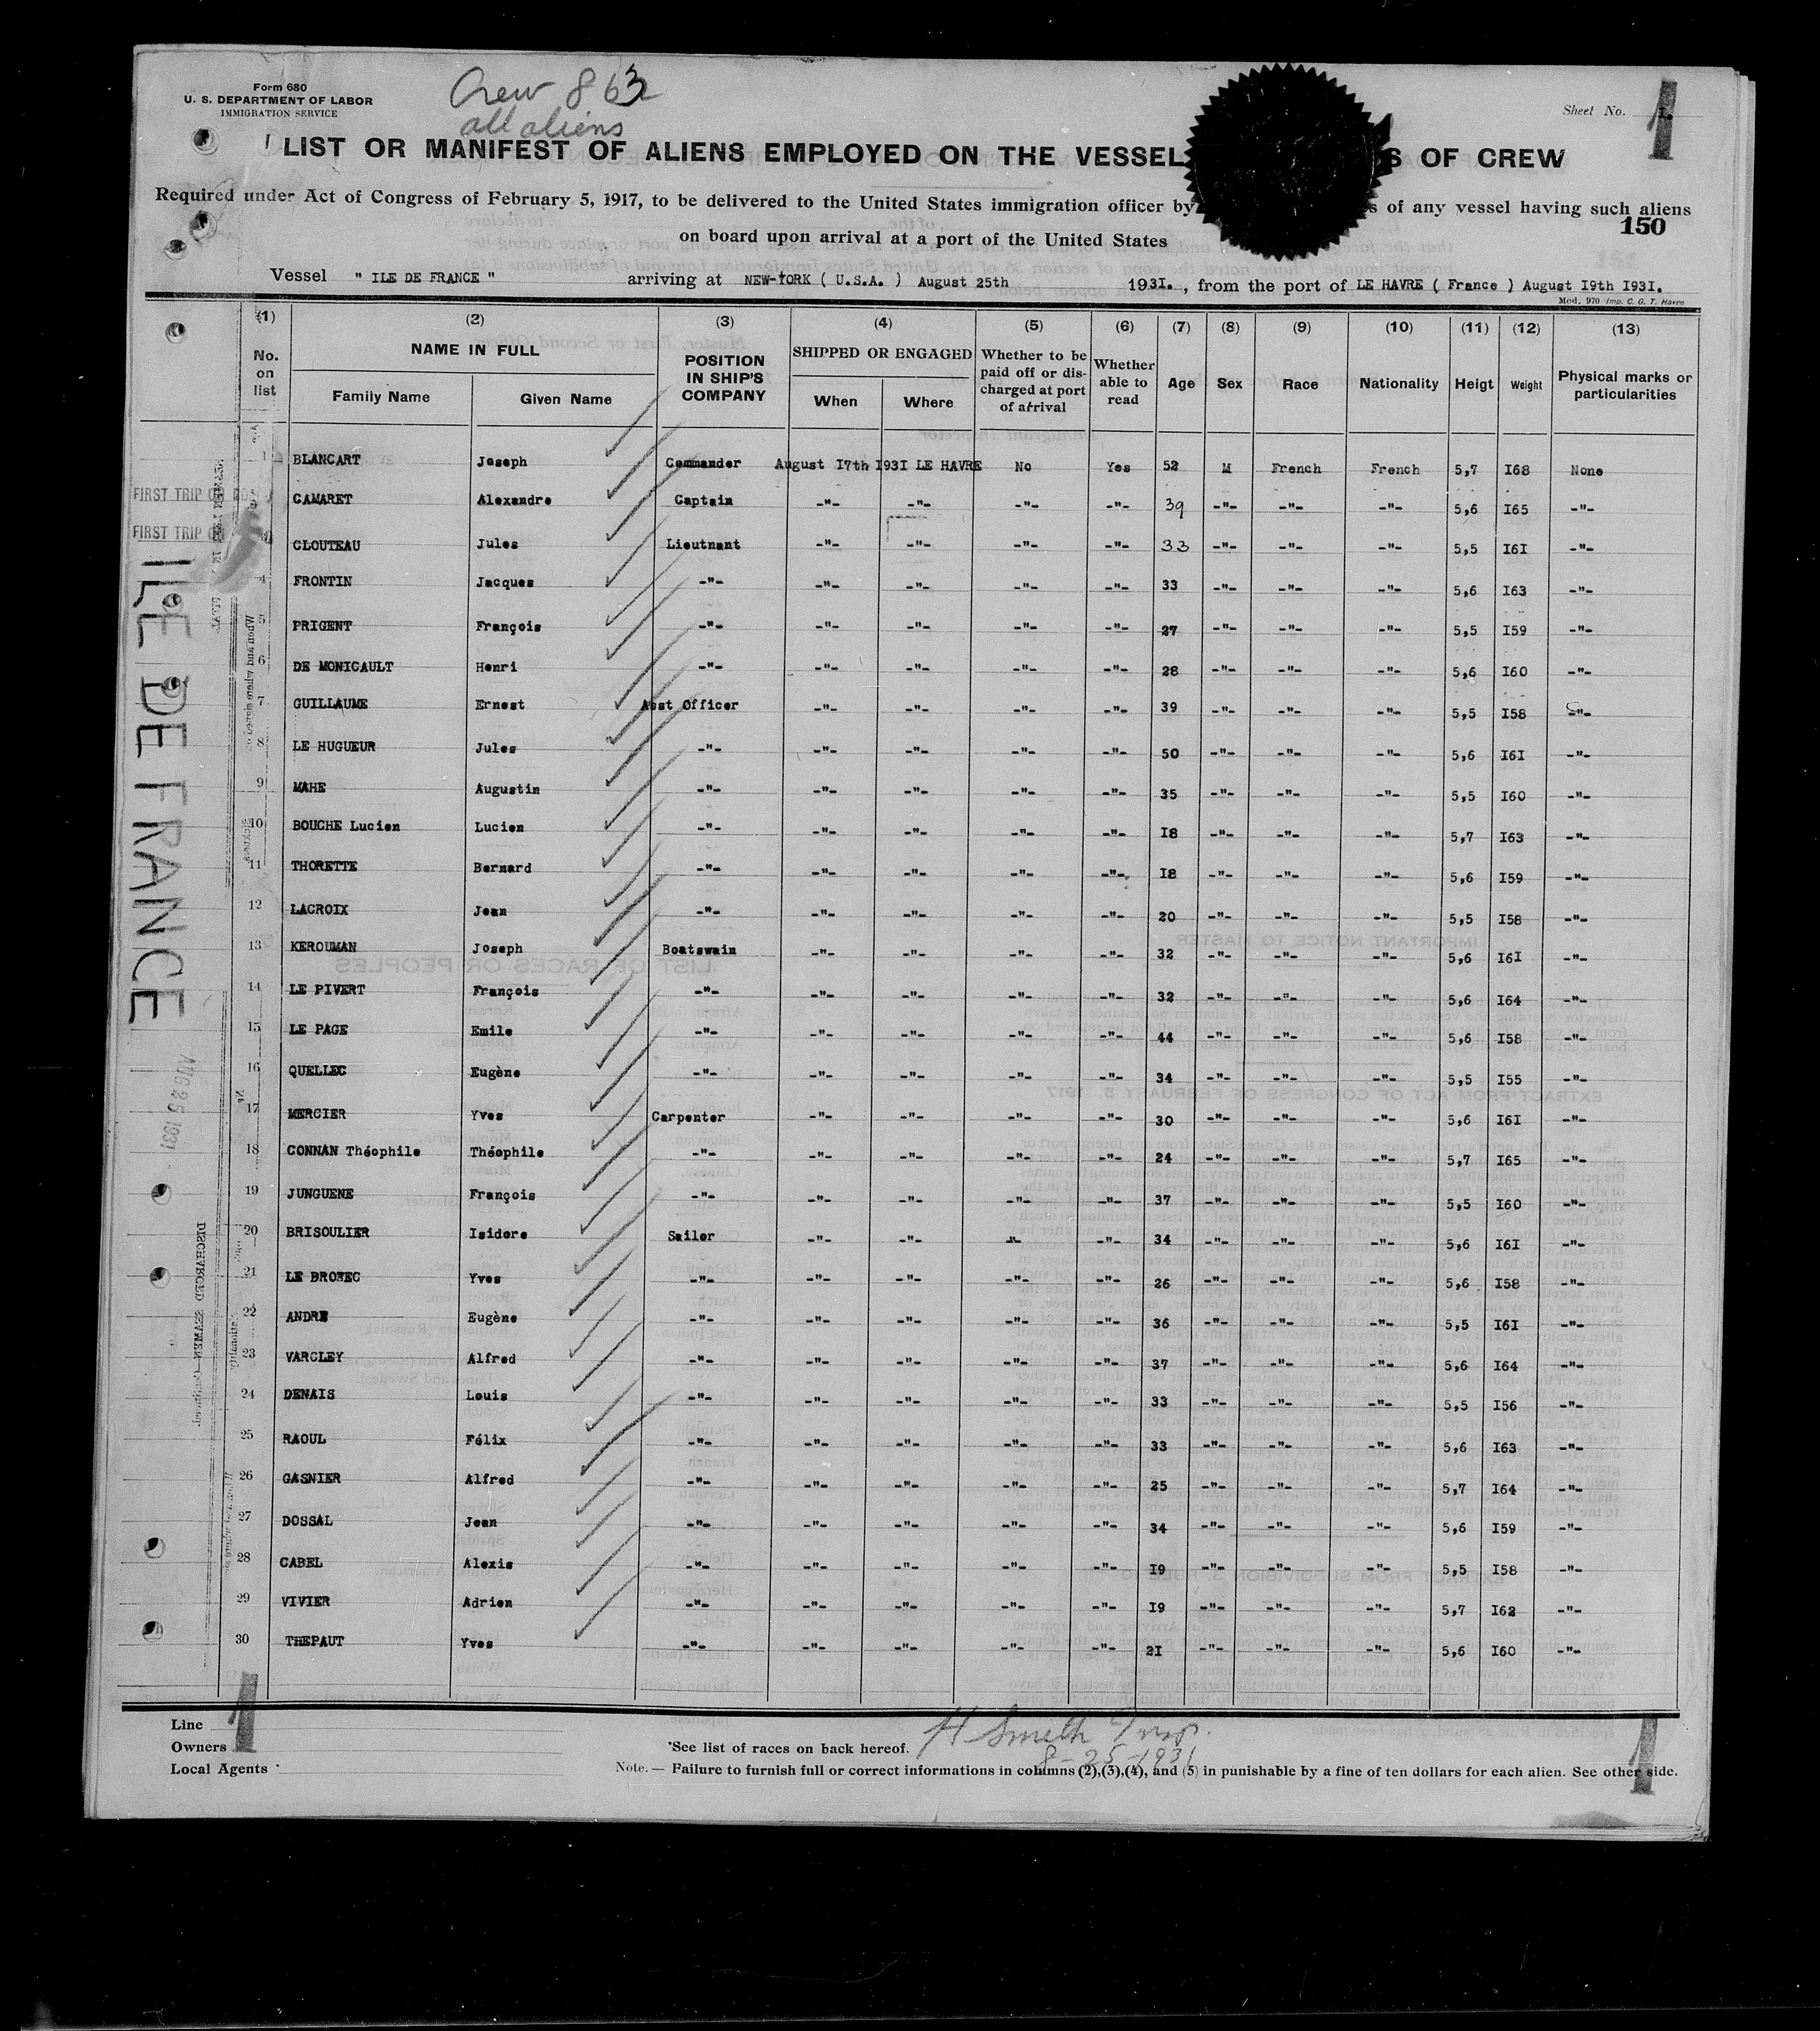 Form 680
U. S. DEPARTMENT OF LABOR
IMMIGRATION SERVICE
Crew 863
all aliens
Sheet No. 1.
LIST OR MANIFEST OF ALIENS EMPLOYED ON THE VESSEL S OF CREW
Required under Act of Congress of February 5, 1917, to be delivered to the United States immigration officer by s of any vessel having such aliens
on board upon arrival at a port of the United States
150
Vessel " ILE DE FRANCE " arriving at NEW-YORK ( U.S.A. ) August 25th 1931. , from the port of LE HAVRE ( France ) August I9th I93I.
Mod. 970 Imp. C. G. T. Havre
(1) (2) (3) (4) (5) (6) (7) (8) (9) (10) (11) (12) (13)
No. on list NAME IN FULL Family Name Given Name POSITION IN SHIP'S COMPANY SHIPPED OR ENGAGED When Where Whether to be paid off or discharged at port of arrival Whether able to read Age Sex Race Nationality Heigt Weight Physical marks or particularities
1 BLANCART Joseph Commander August I7th I93I LE HAVRE No Yes 52 M French French 5,7 I68 None
CAMARET Alexandre Captain -"- -"- -"- -"- 39 -"- -"- -"- 5,6 I65 -"-
CLOUTEAU Jules Lieutnant -"- -"- -"- -"- 33 -"- -"- -"- 5,5 I6I -"-
4 FRONTIN Jacques -"- -"- -"- -"- -"- 33 -"- -"- -"- 5,6 I63 -"-
5 PRIGENT François -"- -"- -"- -"- -"- 27 -"- -"- -"- 5,5 I59 -"-
6 DE MONICAULT Henri -"- -"- -"- -"- -"- 28 -"- -"- -"- 5,6 I60 -"-
7 GUILLAUME Ernest Asst Officer -"- -"- -"- -"- 39 -"- -"- -"- 5,5 I58 -"-
8 LE HUGUEUR Jules -"- -"- -"- -"- -"- 50 -"- -"- -"- 5,6 I6I -"-
9 MAHE Augustin -"- -"- -"- -"- -"- 35 -"- -"- -"- 5,5 I60 -"-
10 BOUCHE Lucien Lucien -"- -"- -"- -"- -"- I8 -"- -"- -"- 5,7 I63 -"-
11 THORETTE Bernard -"- -"- -"- -"- -"- I8 -"- -"- -"- 5,6 I59 -"-
12 LACROIX Jean -"- -"- -"- -"- -"- 20 -"- -"- -"- 5,5 I58 -"-
13 KEROUMAN Joseph Boatswain -"- -"- -"- -"- 32 -"- -"- -"- 5,6 I6I -"-
14 LE PIVERT François -"- -"- -"- -"- -"- 32 -"- -"- -"- 5,6 I64 -"-
15 LE PAGE Emile -"- -"- -"- -"- -"- 44 -"- -"- -"- 5,6 I58 -"-
16 QUELLEC Eugène -"- -"- -"- -"- -"- 34 -"- -"- -"- 5,5 I55 -"-
17 MERCIER Yves Carpenter -"- -"- -"- -"- 30 -"- -"- -"- 5,6 I6I -"-
18 CONNAN Théophile Théophile -"- -"- -"- -"- -"- 24 -"- -"- -"- 5,7 I65 -"-
19 JUNGUENE François -"- -"- -"- -"- -"- 37 -"- -"- -"- 5,5 I60 -"-
20 BRISOULIER Isidore Sailor -"- -"- -"- -"- 34 -"- -"- -"- 5,6 I6I -"-
21 LE Yves -"- -"- -"- -"- -"- 26 -"- -"- -"- 5,6 I58 -"-
22 ANDRE Eugène -"- -"- -"- -"- -"- 36 -"- -"- -"- 5,5 I6I -"-
23 VARCLEY Alfred -"- -"- -"- -"- -"- 37 -"- -"- -"- 5,6 I64 -"-
24 DENAIS Louis -"- -"- -"- -"- -"- 33 -"- -"- -"- 5,5 I56 -"-
25 RAOUL Félix -"- -"- -"- -"- -"- 33 -"- -"- -"- 5,6 I63 -"-
26 GASNIER Alfred -"- -"- -"- -"- -"- 25 -"- -"- -"- 5,7 I64 -"-
27 DOSSAL Jean -"- -"- -"- -"- -"- 34 -"- -"- -"- 5,6 I59 -"-
28 CABEL Alexis -"- -"- -"- -"- -"- I9 -"- -"- -"- 5,5 I58 -"-
29 VIVIER Adrien -"- -"- -"- -"- -"- I9 -"- -"- -"- 5,7 I62 -"-
30 THEPAUT Yves -"- -"- -"- -"- -"- 2I -"- -"- -"- 5,6 I60 -"-
FIRST TRIP
FIRST TRIP
ILE DE FRANCE
AUG 25 1931
Line
Owners
Local Agents
*See list of races on back hereof.
H Smith Insp.
8-25-1931
Note. — Failure to furnish full or correct informations in columns (2),(3),(4), and (5) in punishable by a fine of ten dollars for each alien. See other side.